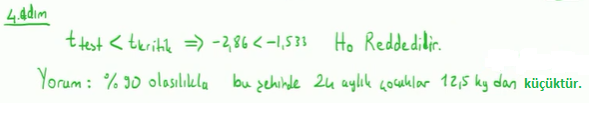 4.adım
t test < t kritik ⇒ -2,86 < -1,533 Ho Reddedilir.
Yorum: % 90 olasılıkla bu şehirde 24 aylık çocuklar 12,5 kg dan küçüktür.